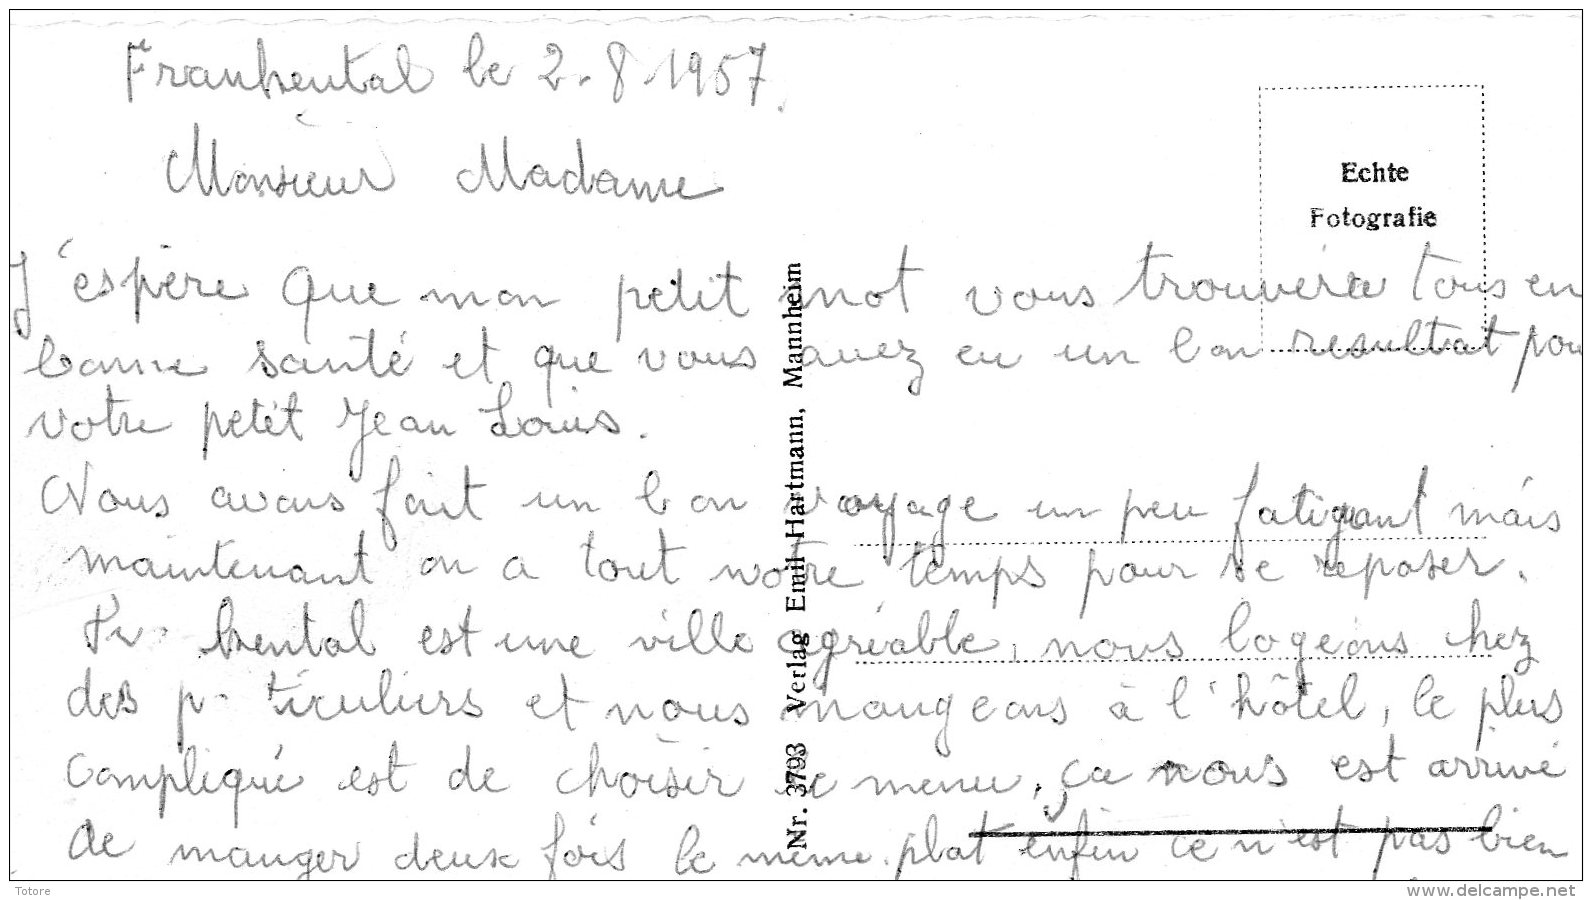 Frankental le 2.8.1957.
Monsieur Madame
J'espère que mon petit mot vous trouvera tous en
bonne santé et que vous avez eu un bon resultat pou
votre petit Jean Louis.
Nous avons fait un bon voyage un peu fatiguant mais
maintenant on a tout notre temps pour se reposer.
Fr kental est une ville agréable, nous logeons chez
des p ticuliers et nous mangeons à l'hôtel, le plus
compliqué est de choisir le menu, ça nous est arrivé
de manger deux fois le même plat enfin ce n'est pas bien
Echte
Fotografie
Nr. 3793 Verlag Emil Hartmann, Mannheim
Totore
www.delcampe.net